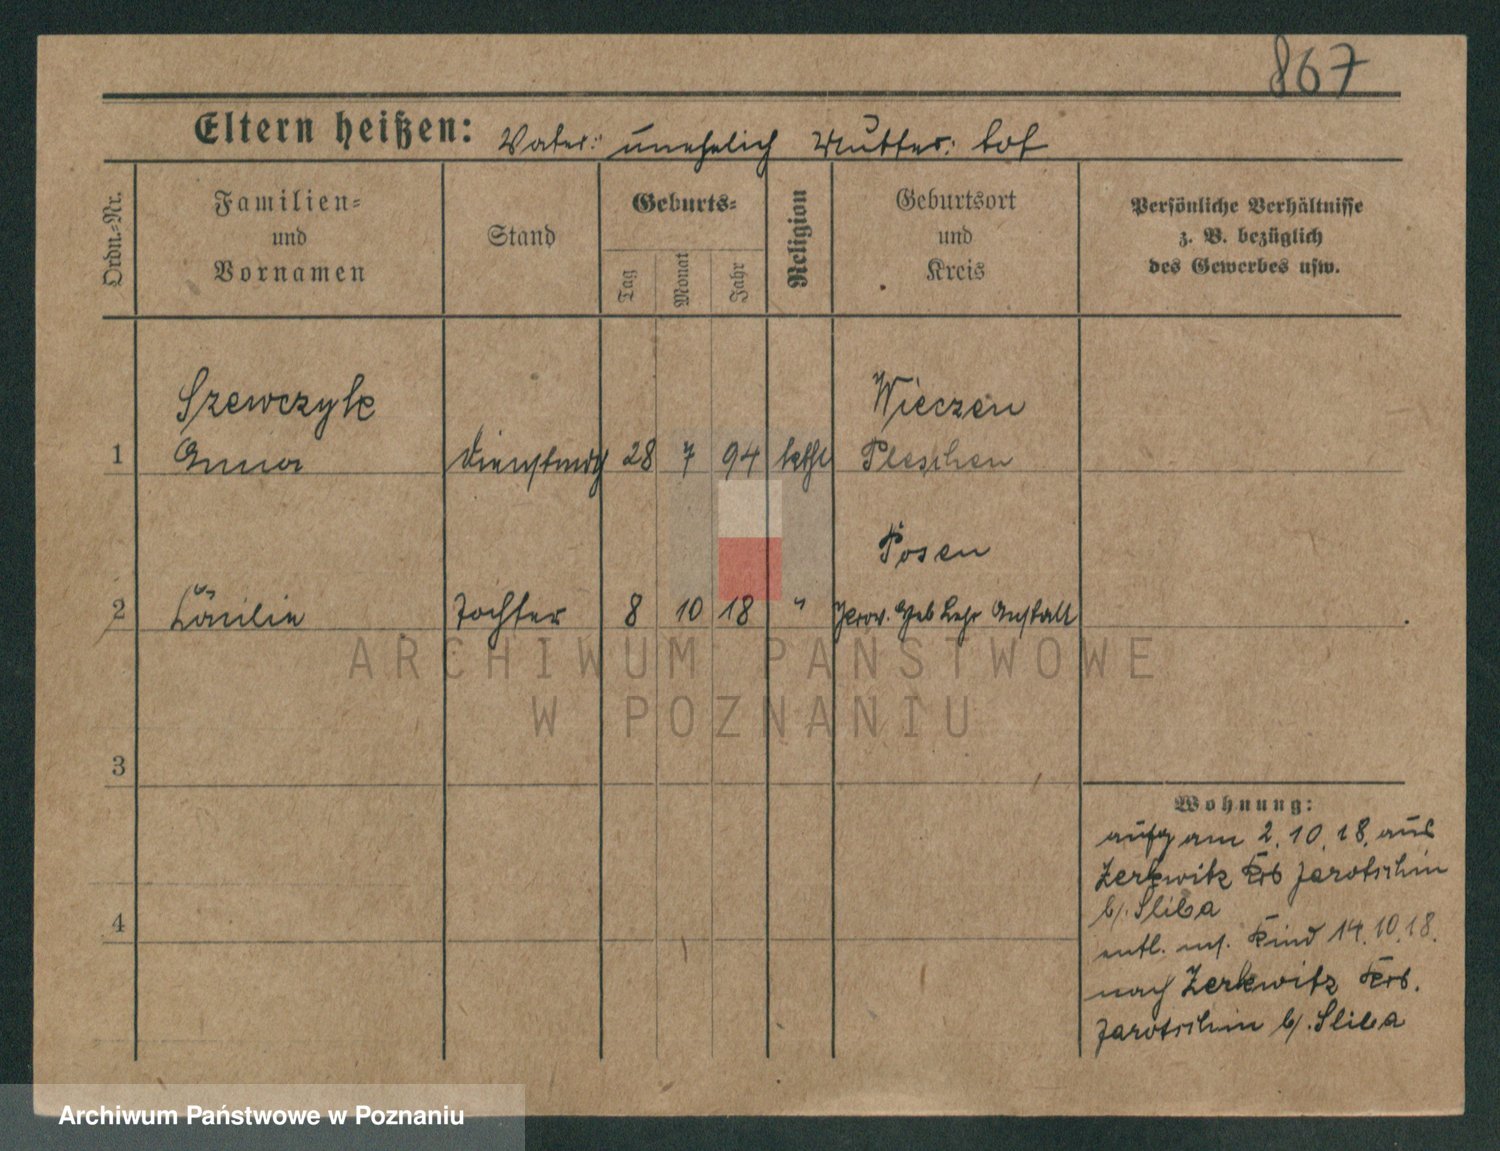 867
Eltern heißen: Vater: unehelich Mutter: tot
Ordn.-Nr.
Familien-
und
Vornamen
Stand
Geburts-
Tag
Monat
Jahr
Religion
Geburtsort
und
Kreis
Persönliche Verhältnisse
z. B. bezüglich
des Gewerbes usw.
Szewczyk Wieczen
1 Anna Dienstmdch 28 7 94 kathl Pleschen
Posen
2 Cäcilie Tochter 8 10 18 " Prov. Heb Lehr Anstalt
3
4
Wohnung:
aufg am 2.10.18. aus
Zerkwitz Krs Jarotschin
b/. Sliba
entl. m/. Kind 14.10.18.
nach Zerkwitz Krs.
Jarotschin b/. Sliba
ARCHIWUM PAŃSTWOWE
W POZNANIU
Archiwum Państwowe w Poznaniu